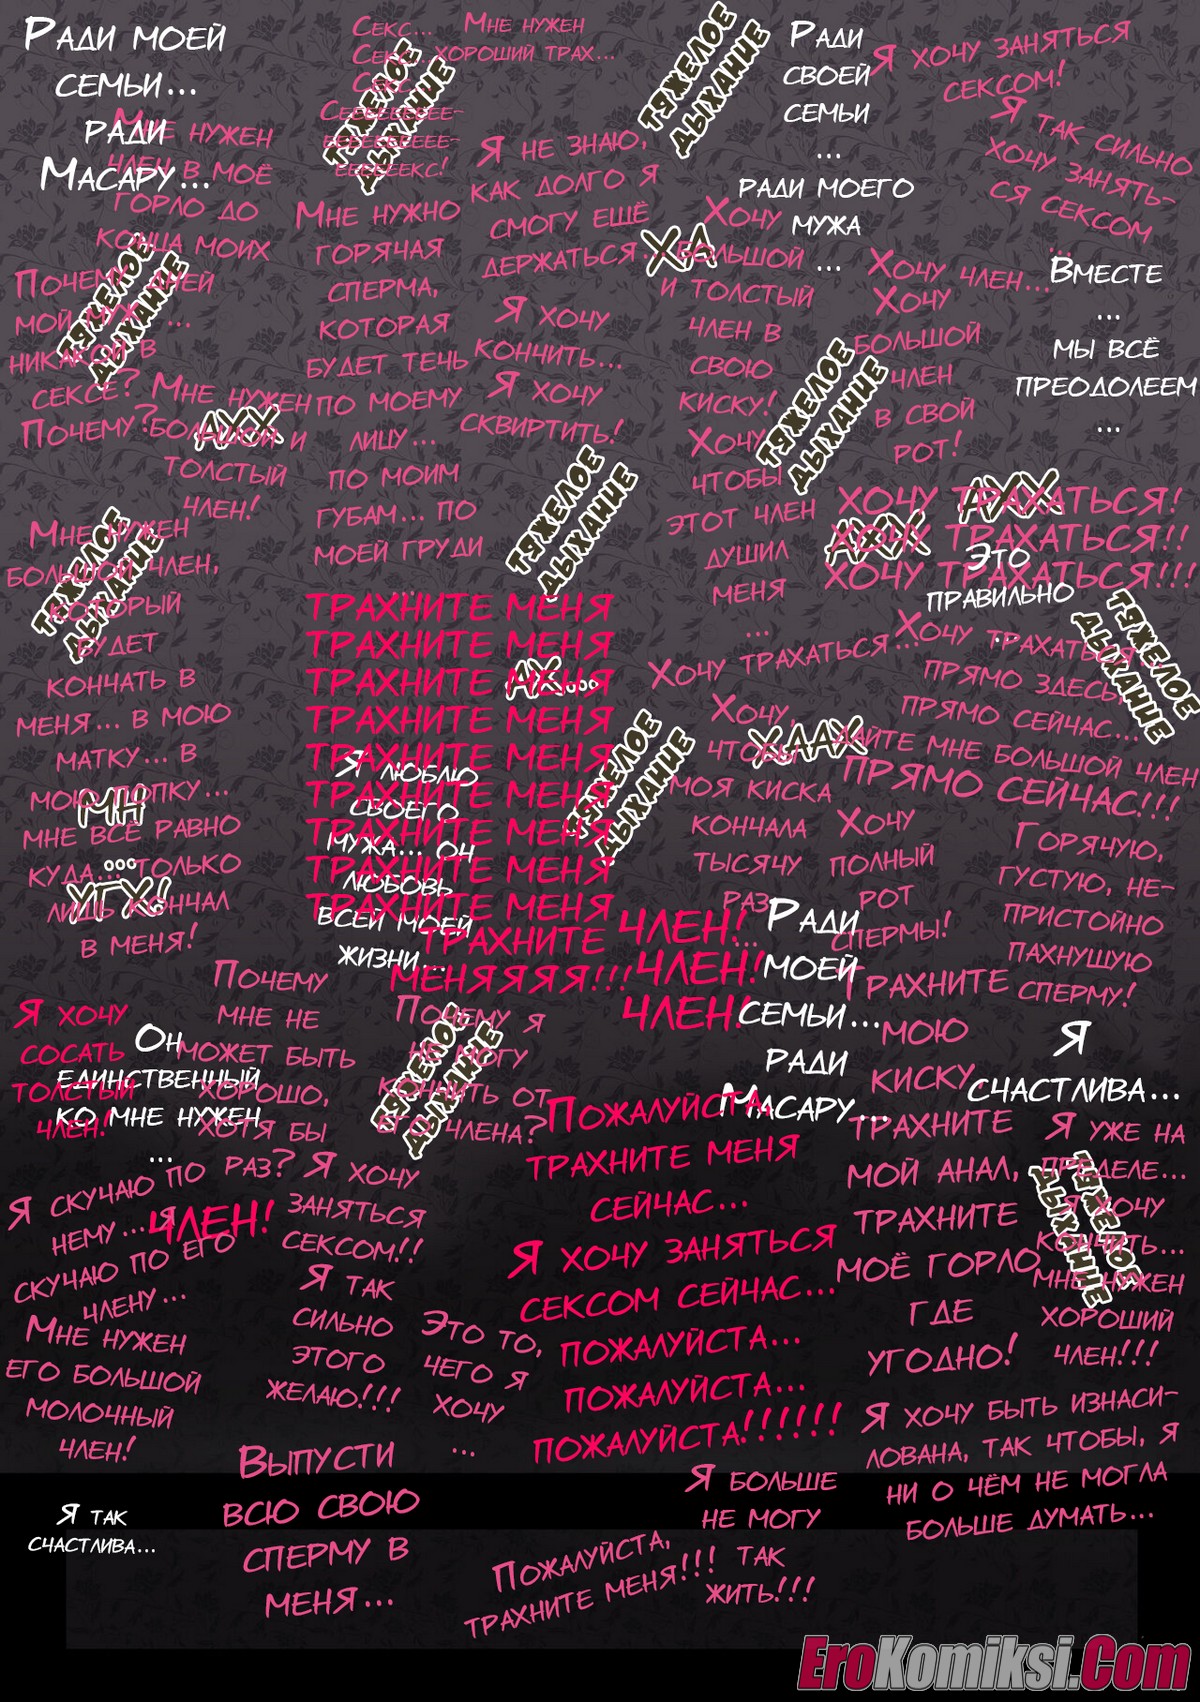 Ради моей
семьи...
ради
Масару...
Мне нужен
член в моё
горло до
конца моих
дней
Секс...
Секс...
Секс...
Сееееееееее-
ееееееееееее-
ееееееекс!
Мне нужен
хороший трах...
тяжелое
дыхание
тяжелое
дыхание
Ради
своей
семьи
...
ради моего
мужа
...
Я хочу заняться
сексом!
Я так сильно
хочу занять-
ся сексом
...
Я не знаю,
как долго я
смогу ещё
держаться...
Ха
Я хочу
кончить...
Я хочу
сквиртить!
Мне нужно
горячая
сперма,
которая
будет течь
по моему
лицу...
по моим
губам... по
моей груди
...
тяжелое
дыхание
Почему
мой муж...
никакой в
сексе?
Почему?
Мне нужен
большой и
толстый
член!
Ахх
Хочу
большой
и толстый
член в
свою
киску!
Хочу
чтобы
этот член
душил
меня
...
Хочу член...
Хочу
большой
член
в свой
рот!
Вместе
...
мы всё
преодолеем
...
тяжелое
дыхание
тяжелое
дыхание
Ахх
хочу трахаться!
хочу трахаться!!
хочу трахаться!!!
Это
правильно
...
тяжелое
дыхание
Мне нужен
большой член,
который
будет
кончать в
меня... в мою
матку... в
мою попку...
мне всё равно
куда... только
лишь кончал
в меня!
тяжелое
дыхание
мн
...
угх!
трахните меня
трахните меня
трахните меня
трахните меня
трахните меня
трахните меня
трахните меня
трахните меня
трахните меня
трахните
меняяяя!!!
ах...
Я люблю
своего
мужа... он
любовь
всей моей
жизни...
тяжелое
дыхание
Хочу трахаться...
Хочу,
чтобы
моя киска
кончала
тысячу
раз
...
хаах
Хочу трахаться
прямо здесь,
прямо сейчас...
дайте мне большой член
прямо сейчас!!!
Хочу
полный
рот
спермы!
Горячую,
густую, не-
пристойно
пахнущую
сперму!
член!
член!
член!
Ради
моей
семьи...
ради
Масару...
Трахните
мою
киску,
трахните
мой анал,
трахните
моё горло
где
угодно!
Я
счастлива...
Я уже на
пределе...
я хочу
кончить...
мне нужен
хороший
член!!!
тяжелое
дыхание
Я хочу
сосать
толстый
член!
Он
единственный
ко мне нужен
...
Почему
мне не
может быть
хорошо,
хотя бы
раз?
Почему я
не могу
кончить от
его члена?
тяжелое
дыхание
Я скучаю по
нему... я
скучаю по его
члену...
член!
Я хочу
заняться
сексом!!
Я так
сильно
этого
желаю!!!
Пожалуйста,
трахните меня
сейчас...
Я хочу заняться
сексом сейчас...
пожалуйста...
пожалуйста...
пожалуйста!!!!!!
Мне нужен
его большой
молочный
член!
Это то,
чего я
хочу
...
Я хочу быть изнаси-
лована, так чтобы, я
ни о чём не могла
больше думать...
Выпусти
всю свою
сперму в
меня...
Я так
счастлива...
Я больше
не могу
так
жить!!!
Пожалуйста,
трахните меня!!!
EroKomiksi.Com